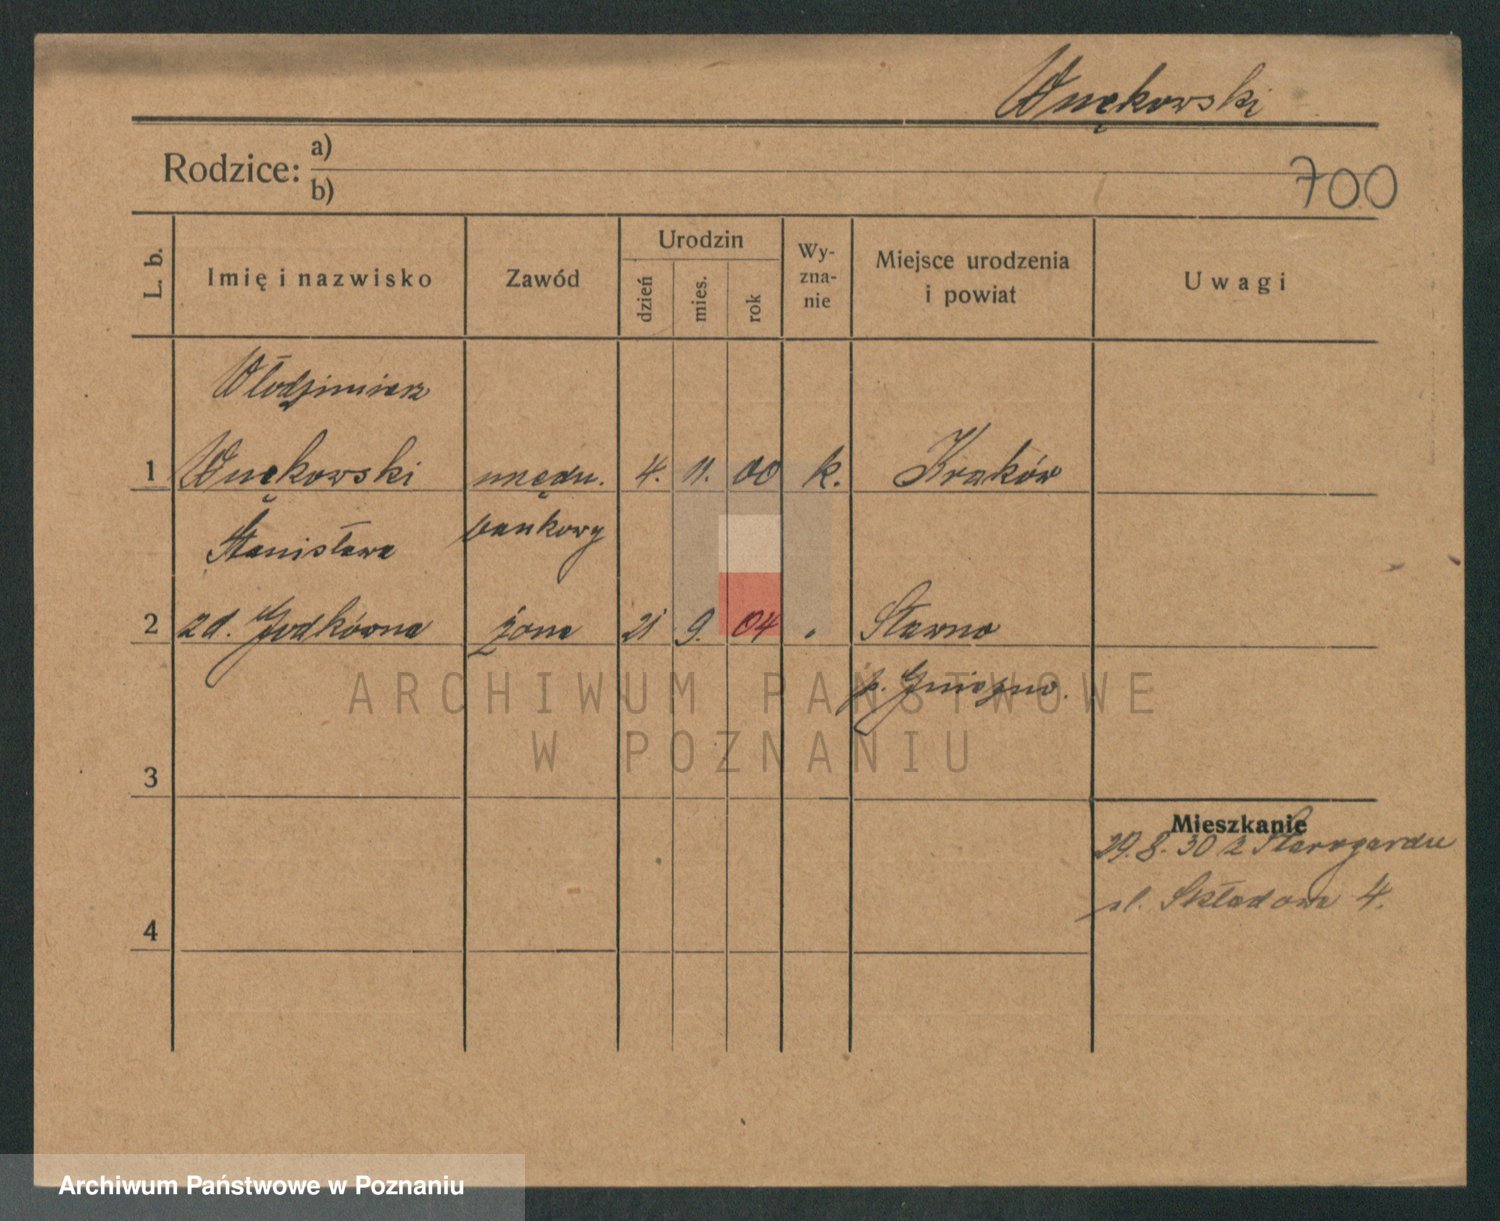 Wnękowski
Rodzice: a)
b)
700
L. b.
Imię i nazwisko
Zawód
Urodzin
dzień
mies.
rok
Wy-
zna-
nie
Miejsce urodzenia
i powiat
Uwagi
Włodzimierz
1 Wnękowski urzędn. 4. 11. 00 k. Kraków
Stanisława bankowy
2 zd. Jodkówna żona 21 9. 04 " Sławno
p. Gniezno.
ARCHIWUM PAŃSTWOWE
W POZNANIU
3
Mieszkanie
29.8.30 z Starogardu
ul. Składowa 4.
4
Archiwum Państwowe w Poznaniu